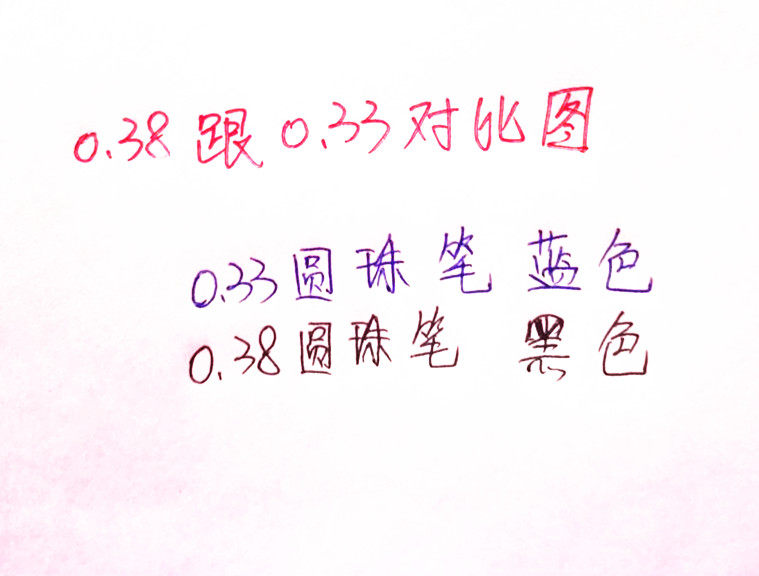 0.38跟0.33对比图
0.33圆珠笔 蓝色
0.38圆珠笔 黑色